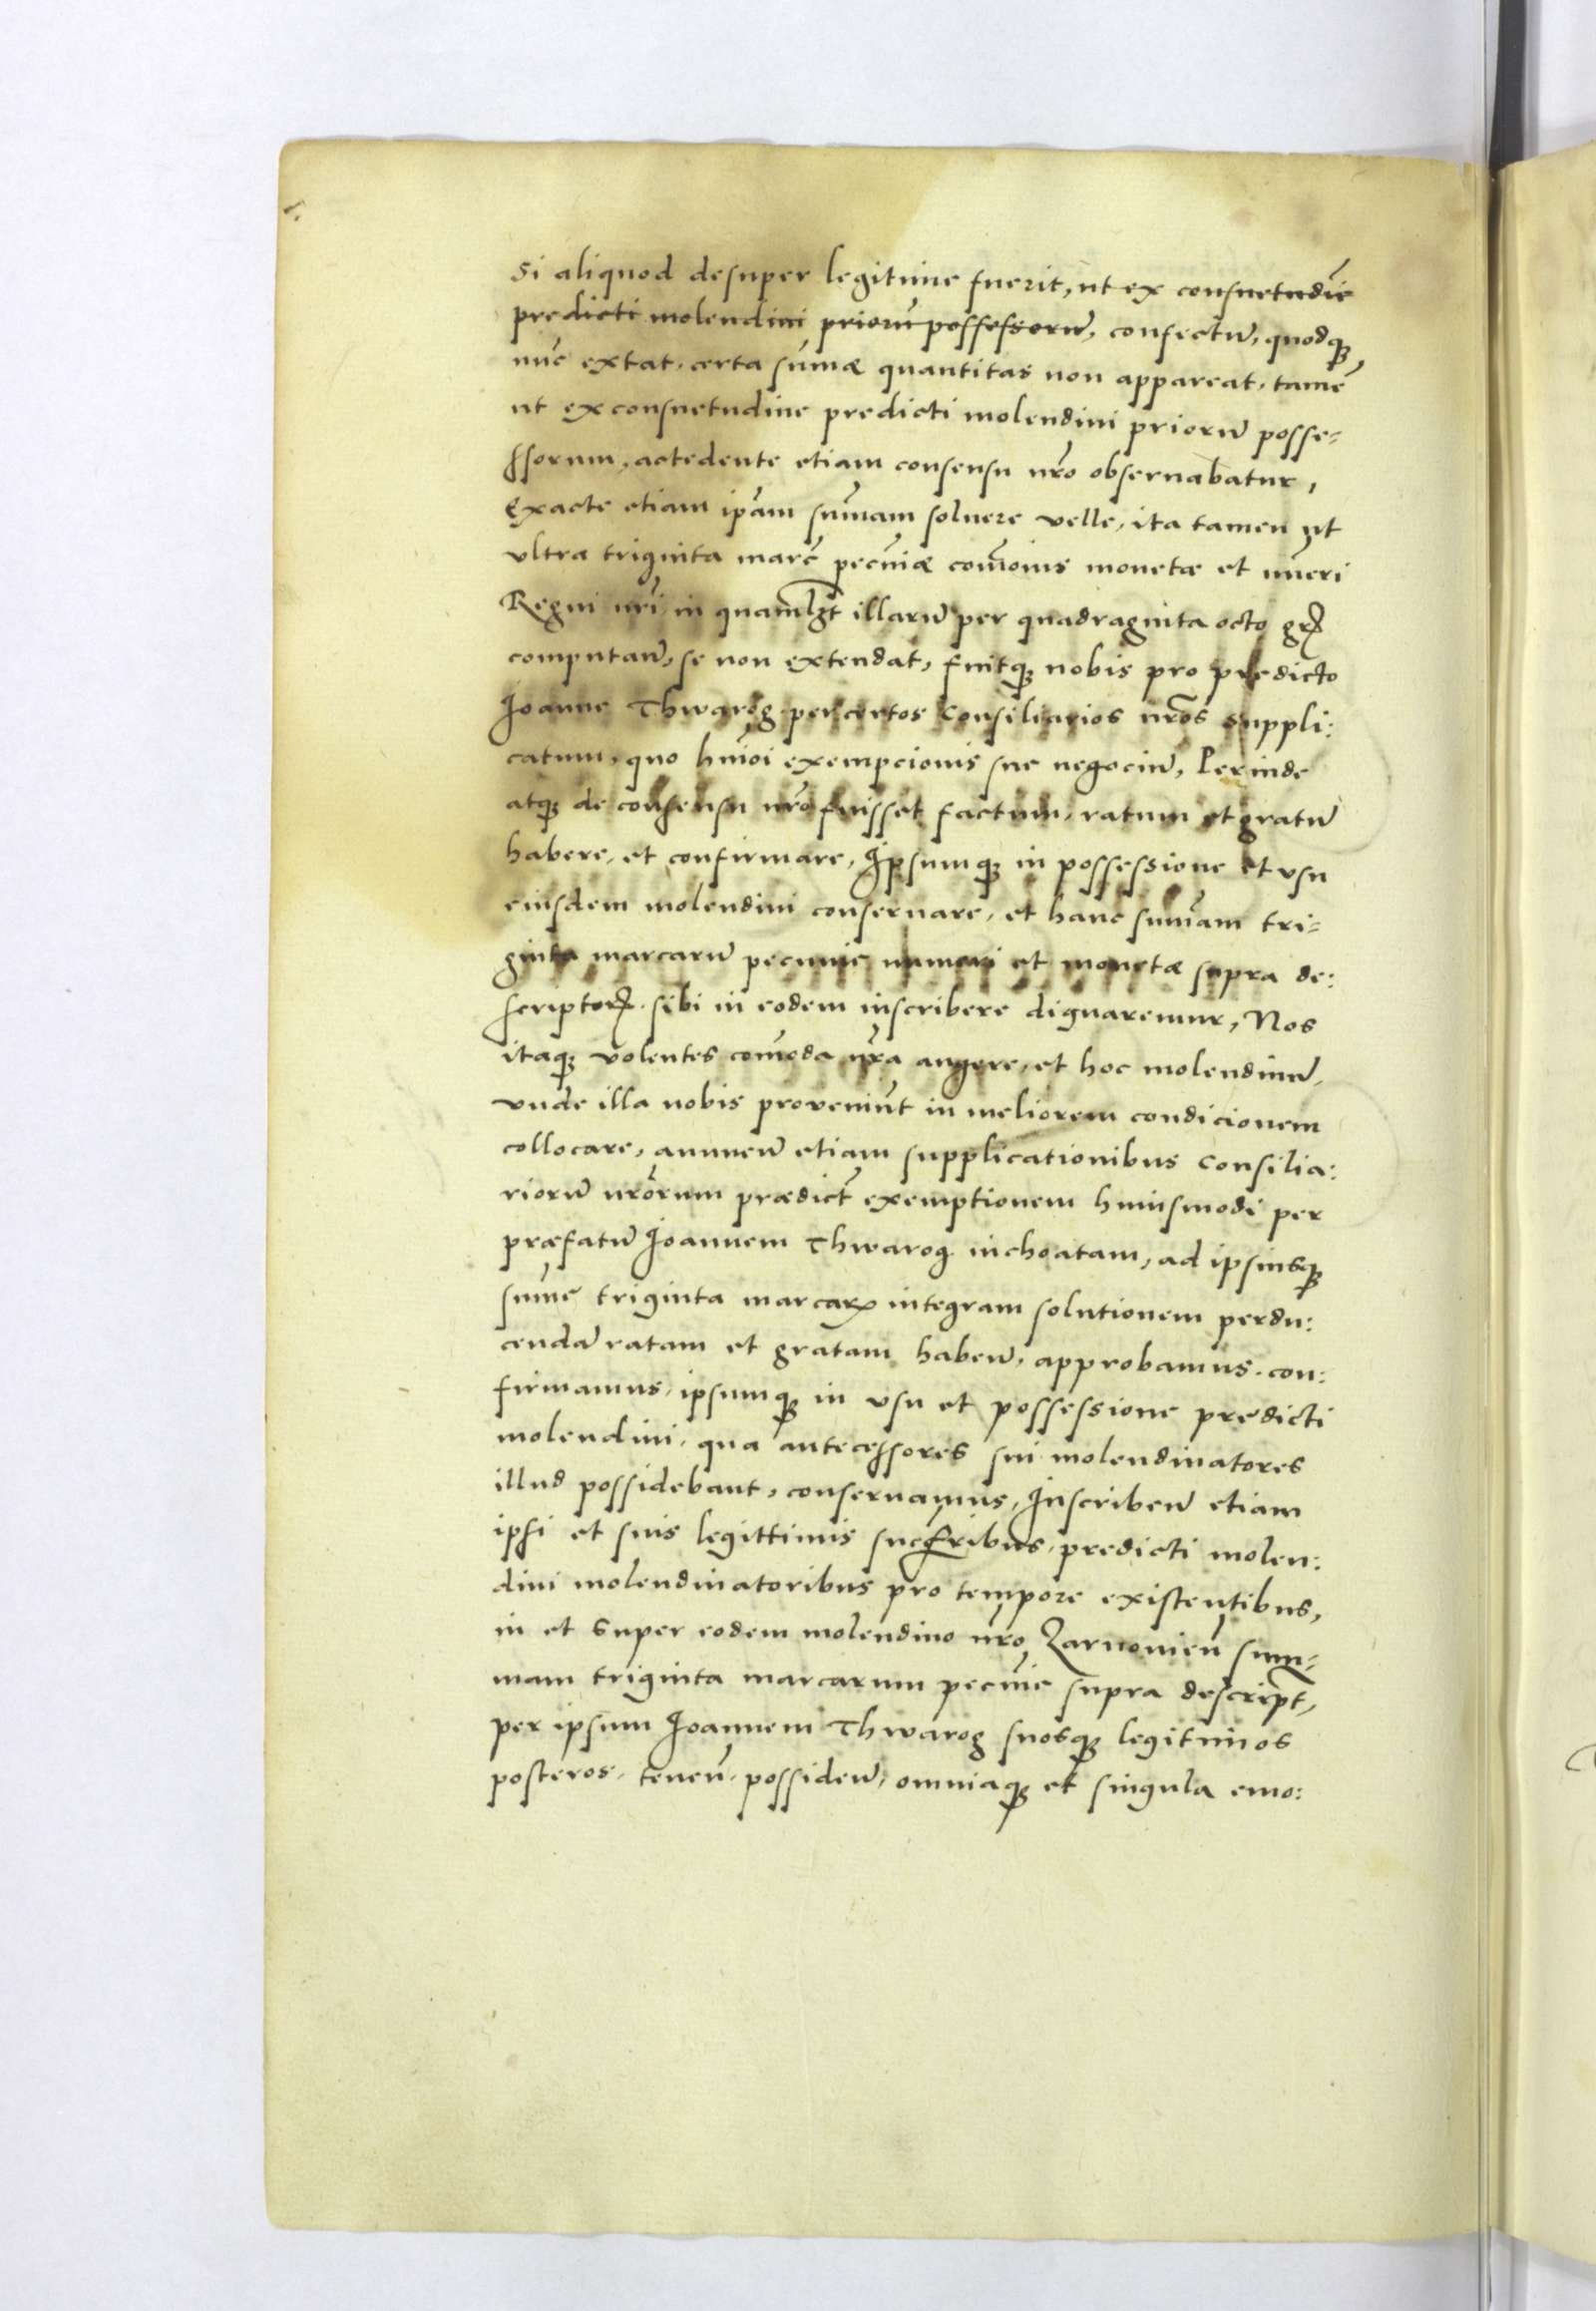 Si aliquod desuper legitime fuerit, ut ex consuetudĩe
predicti molendini priorũ possessorũ, confectũ, quodqꝫ
nũc extat, certa sum̃æ quantitas non appareat, tamẽ
ut ex consuetudine predicti molendini priorũ posse-
ssorum, accedente etiam consensu nr̃o observabatur,
Exacte etiam ip̃am sum̃am soluere velle, ita tamen ut
ultra triginta marc̃ pecũiæ com̃onis monetæ et nũeri
Regni nr̃i in quamlꝫt illarũ per quadraginta octo grꝭ
computan̄, se non extendat, fuitqꝫ nobis pro predicto
Joanne Thwarog per certos Consiliarios nr̃os suppli:
catum, quo hm̃oi exempcionis sue negociũ, Perinde
atqꝫ de consensu nr̃o fuisset factum, ratum et gratũ
habere, et confirmare, Ipsumqꝫ in possessione et usu
eiusdem molendini conseruare, et hanc sum̃am tri-
ginta marcarũ pecunie numeri et monetæ supra de:
scriptorꝭ sibi in eodem inscribere dignaremur, Nos
itaqꝫ volentes com̃oda nr̃a augere, et hoc molendinũ,
unde illa nobis proveniũt in meliorem condicionem
collocare, annuen̄ etiam supplicationibus Consilia:
riorũ nr̃orum prædict̃ exemptionem huiusmodi per
præfatũ Joannem Thwarog inchoatam, ad ipsiusqꝫ
sum̃e triginta marcarꝝ integram solutionem perdu:
cendã ratam et gratam haben̄, approbamus, con:
firmamus, ipsumqꝫ in usu et possessione predicti
molendini, qua antecessores sui molendinatores
illud possidebant, conseruamus, Inscriben̄ etiam
ipsi et suis legittimis succ̃ribus, predicti molen:
dini molendinatoribus pro tempore existentibus,
in et super eodem molendino nr̃o Zarnovien̄ sum-
mam triginta marcarum pecũie supra descript̃,
per ipsum Joannem Thwarog suosqꝫ legitimos
posteros, tenen̄, possiden̄, omniaqꝫ et singula emo: